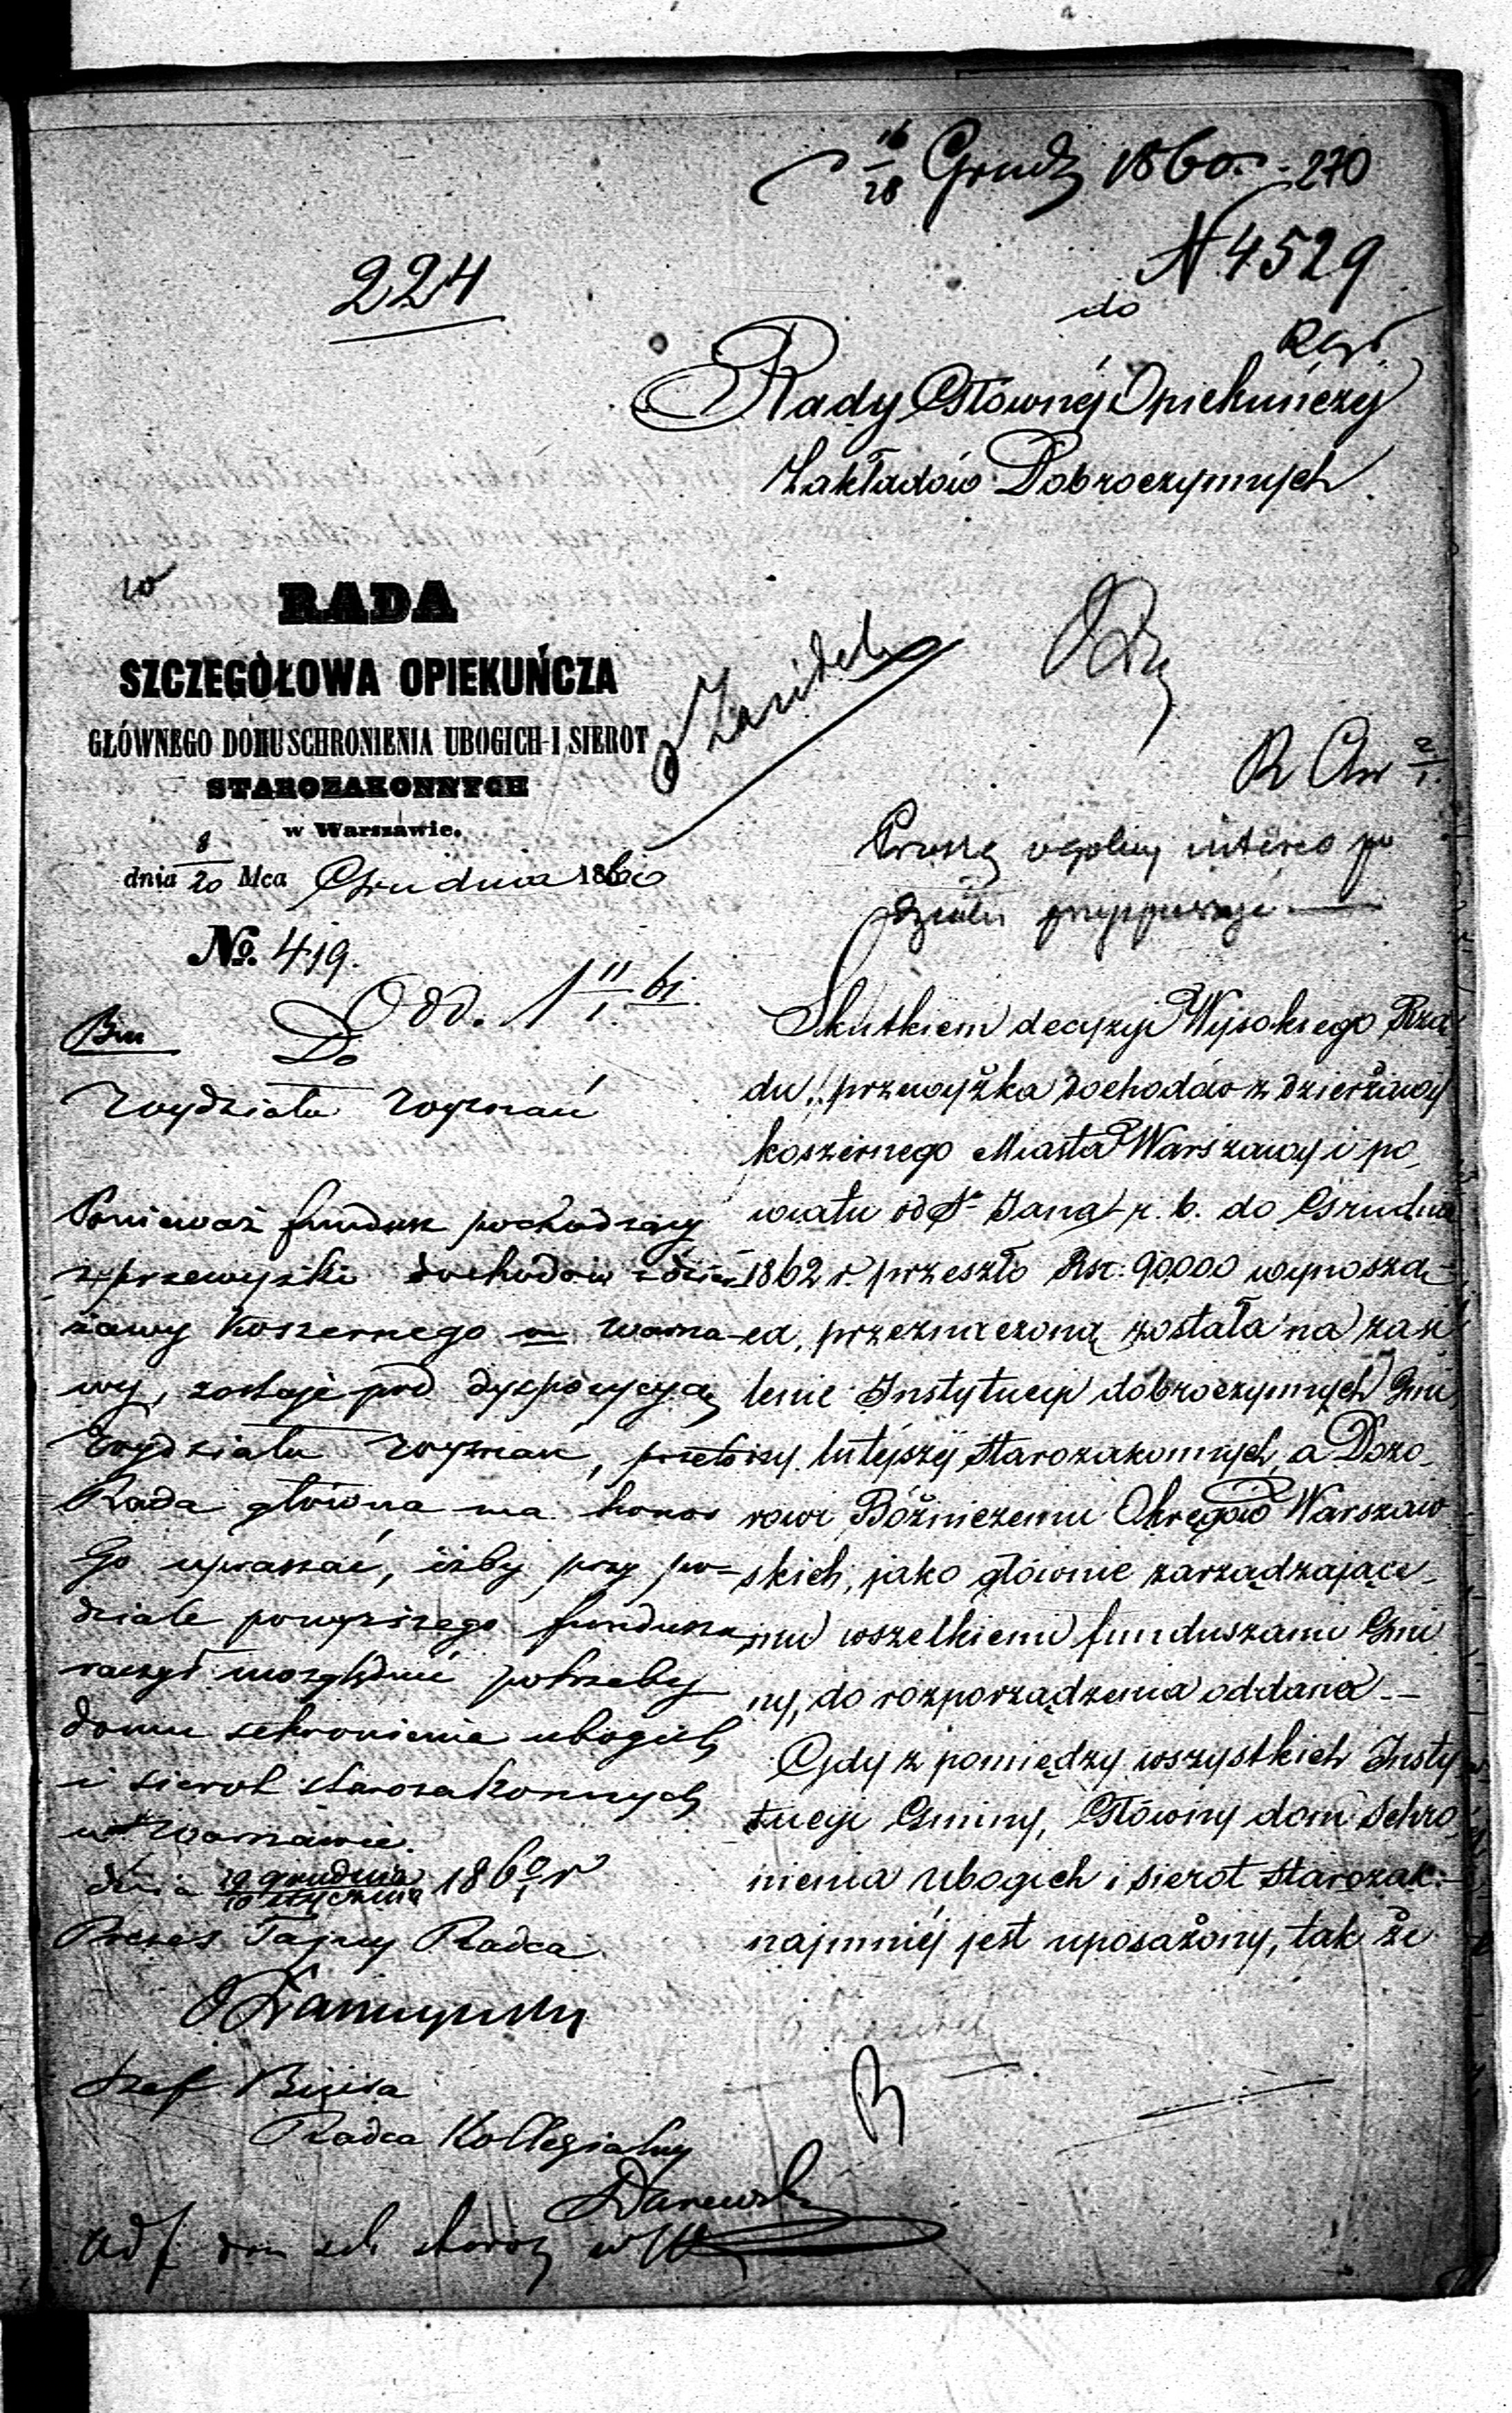 16/28 Grudz 1860. 270
N 4529
224
do
Rady Głównéj Opiekuńczéj
Zakładów Dobroczynnych
RADA
SZCZEGÓŁOWA OPIEKUŃCZA
GŁÓWNEGO DOMU SCHRONIENIA UBOGICH I SIEROT
STAROZAKONNYCH
w Warszawie.
dnia 8/20 Mca Grudnia 1860
No. 419.
Odd. 1 11/1 61.
Do
Wydziału Wyznań
Ponieważ fundusz pochodzący
z przewyżki dochodów z dzier
żawy koszernego m. Warsza
wy, zostaje pod dyspozycyą
Wydziału Wyznań, przeto
Rada główna ma honor
Go upraszać, iżby przy po-
dziale powyższego funduszu,
raczył uwzględnić potrzeby
domu schronienia ubogich
i sierot starozakonnych
w Warszawie.
dnia 29 grudnia/10 stycznia 1860/1 r
Prezes Tajny Radca
Szef Biura
Radca Kollegialny
R
Proszę
Skutkiem decyzyi Wysokiego Rzą
du, przewyżka dochodów z dzierżawy
koszernego Miasta Warszawy i po,
wiatu od Sgo Jana r. b. do Grudnia
1862 r. przeszło Rsr. 90,000 wynoszą-
ca, przeznaczoną została na zasi
lenie Instytucyi dobroczynnych Gmi
ny tutéjszéj Starozakonnych, a Dozo-
rowi Bóżniczemu Okręgów Warszaw
skich, jako głównie zarządzające-
mu wszelkiemi funduszami Gmi
ny, do rozporządzenia oddana.-
Gdy z pomiędzy wszystkich Insty
tucyi Gminy, Główny dom Schro,
nienia Ubogich i sierot starozak:
najmniéj jest uposażony, tak że